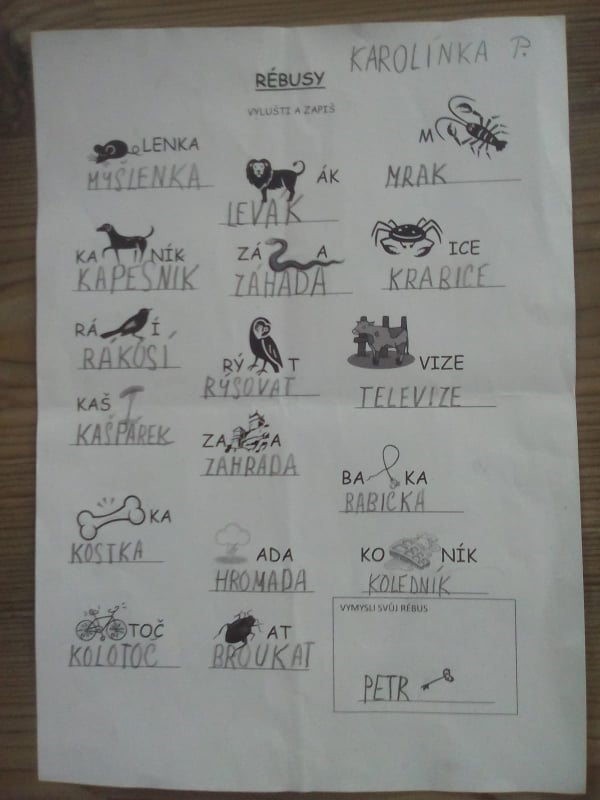 KAROLÍNKA P.
RÉBUSY
VYLUŠTI A ZAPIŠ
LENKA
MYŠLENKA
ÁK
LEVÁK
M
MRAK
KA NÍK
KAPESNIK
ZÁ A
ZÁHADA
ICE
KRABICE
RÁ Í
RÁKOSÍ
RÝ T
RÝSOVAT
VIZE
TELEVIZE
KAŠ
KAŠPÁREK
ZA A
ZAHRADA
BA KA
BABICKA
KA
KOSTKA
ADA
HROMADA
KO NÍK
KOLEDNÍK
TOČ
KOLOTOC
AT
BROUKAT
VYMYSLI SVŮJ RÉBUS
PETR